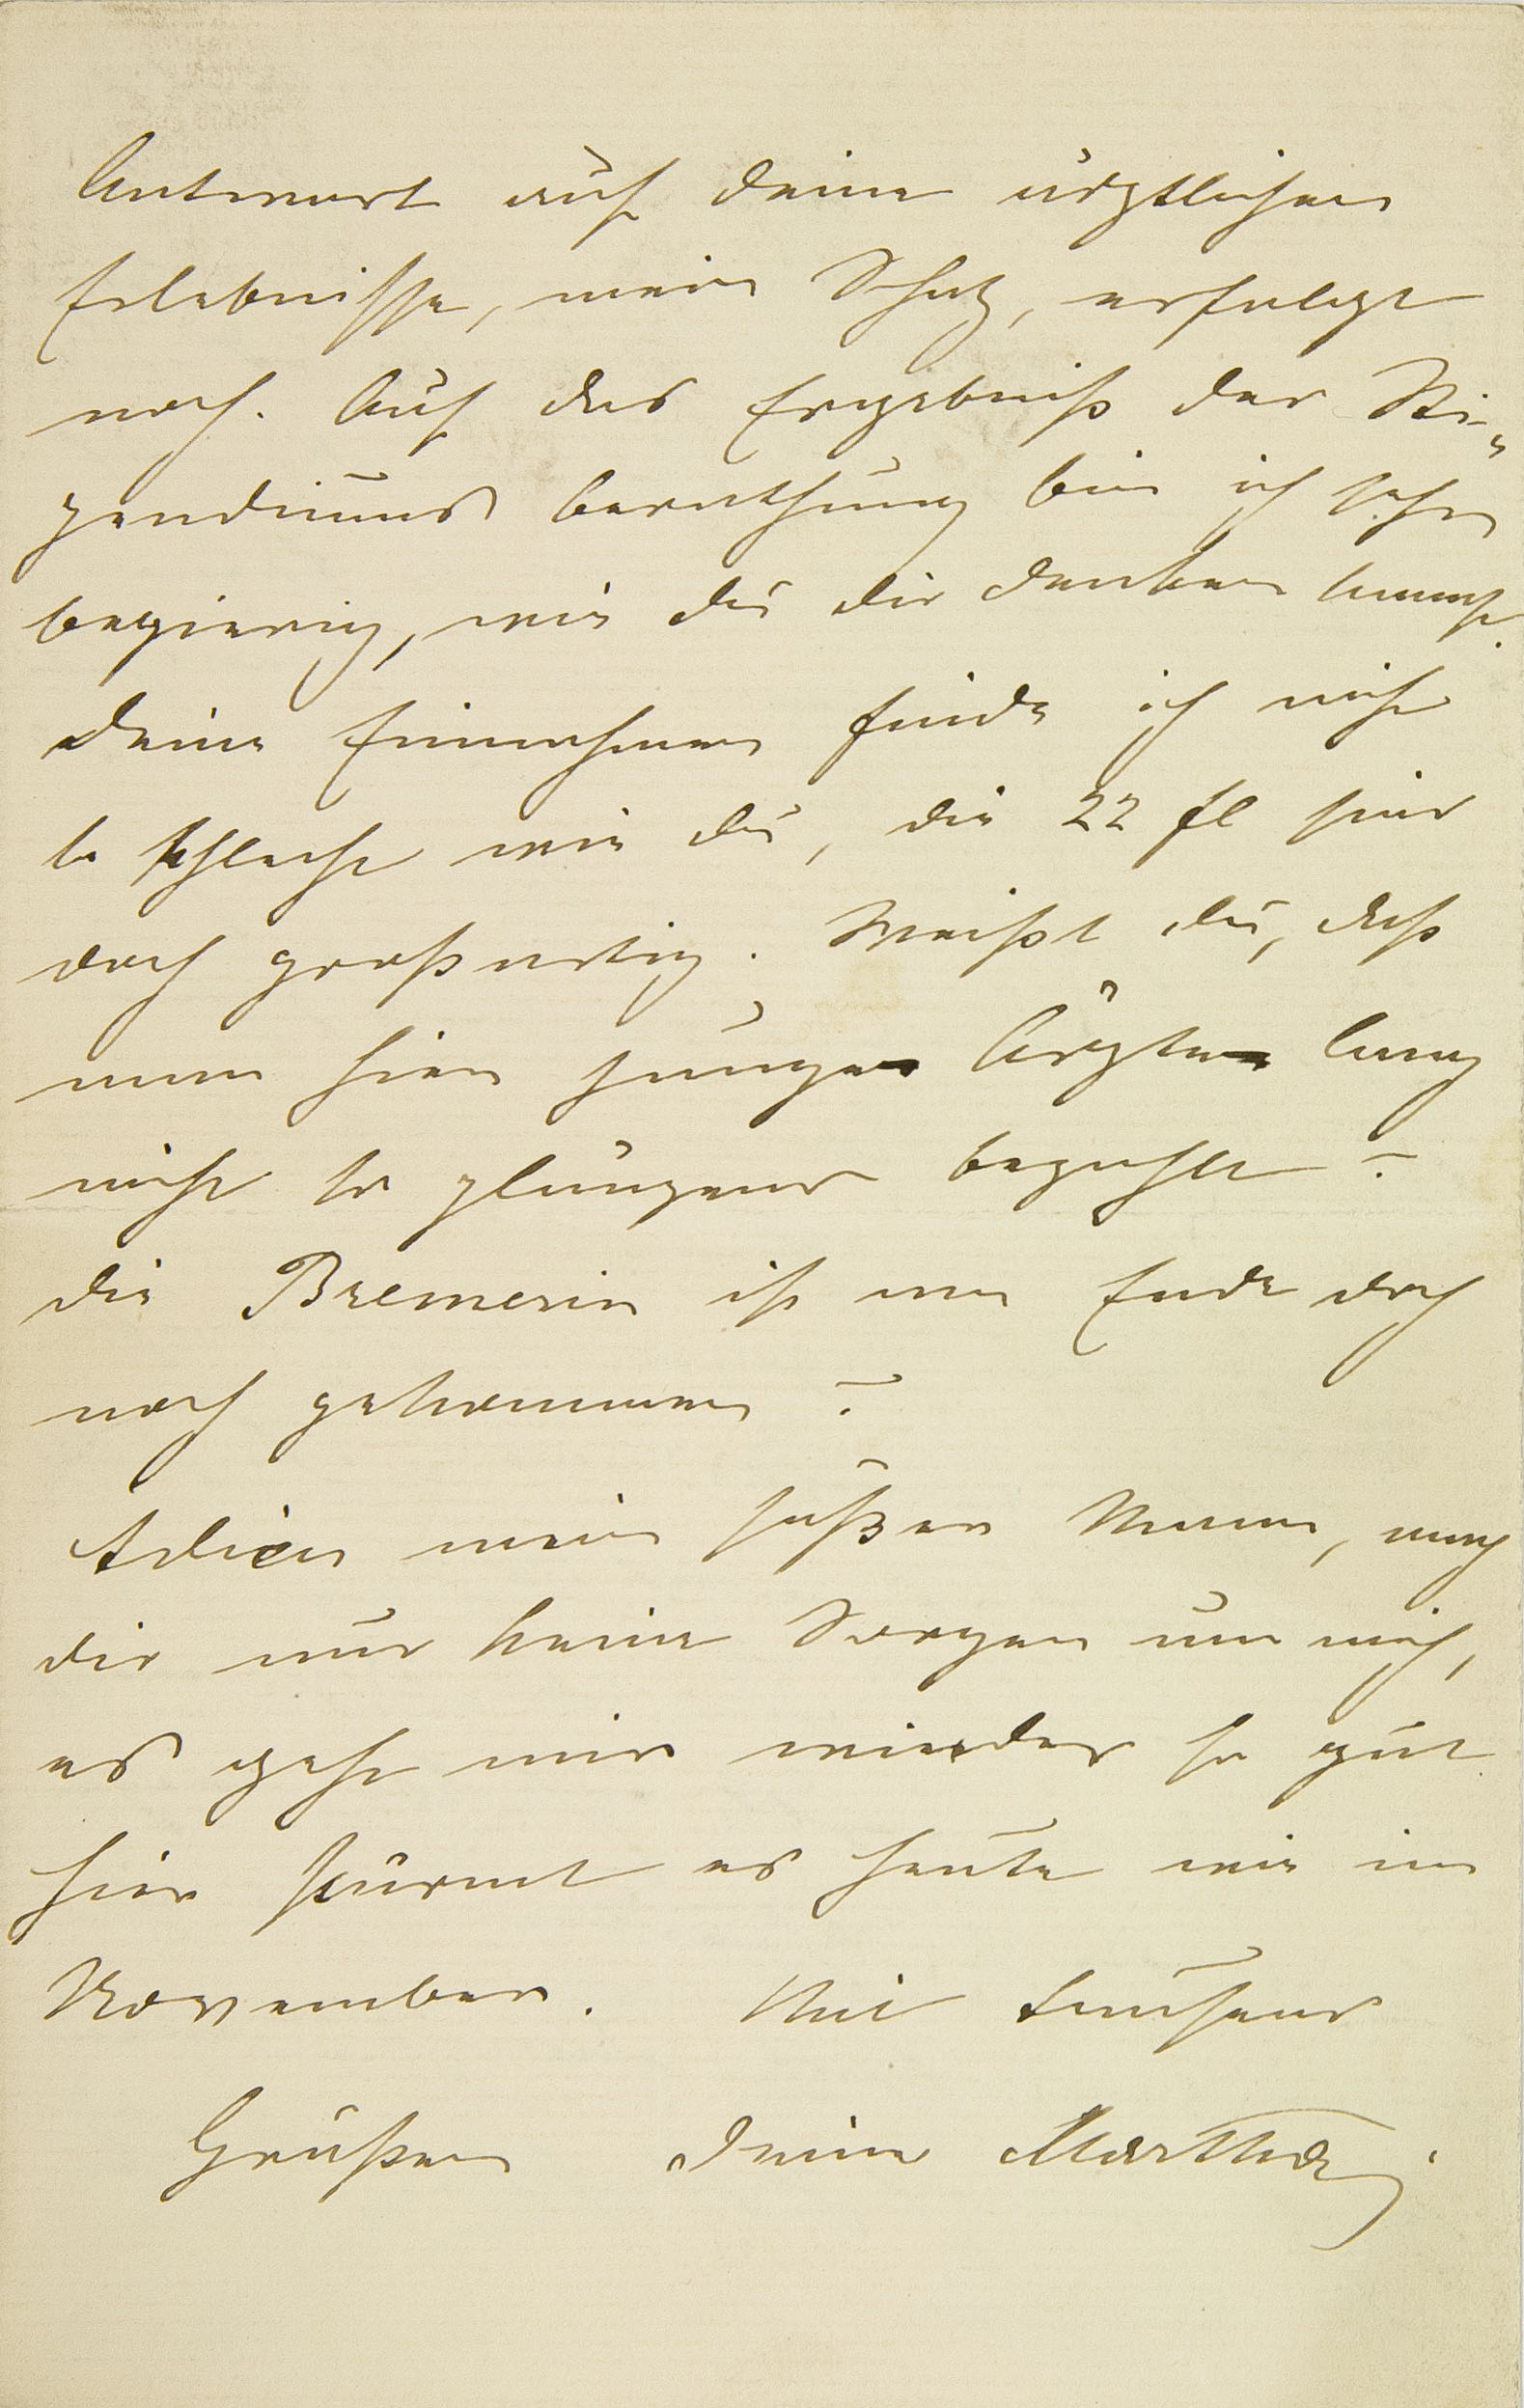 Antwort auf deine ärztlichen
Erlebnisse, mein Schatz, erfolgt
noch. Auf das Ergebniß der Sti-
pendiums berathung bin ich schon
begierig, wie du dir denken kannst.
deine Einnahmen finde ich nicht
so schlecht wie du, die 22 fl sind
doch großartig. Weißt du, daß
man hier junge Ärzte lang
nicht so glänzend bezahlt?
die Bremerin ist am Ende doch
noch gekommen?
Adieu mein süßer Mann, mach
dir nur keine Sorgen um mich,
es geht mir wieder so gut
hier stürmt es heute wie im
November. Mit tausend
Grüßen deine Martha.